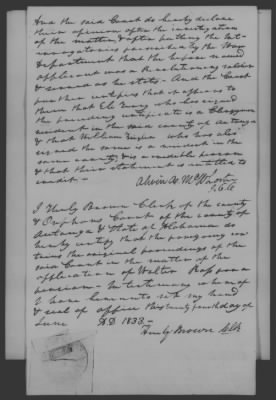 And the said Court do hereby declare
their opinion after the investigation
of the matter & after putting the int-
errogatories prescribed by the War
Department that the before named
applicant was a Revolutionary soldier
& served as he states - And the Court
further certifies that it appears to
them that who has signed
the preceding certificate is a Clergyman
resident in the same county of Autauga
& that William who has also
signed the same is a resident in the
same county & is a credible person
& that their statement is entitled to
credit -
Alvin A. McWhorter
J. C. C.
I Henly Brown Clerk of the county
& Orphans Court of the county of
Autauga & State of Alabama do
hereby certify that the foregoing con-
tains the original proceedings of the
said Court in the matter of the
application of Walter Ross for a
pension - In testimony whereof
I have hereunto set my hand
& seal of office this day of
June A.D. 1833 -
Henly Brown Clk